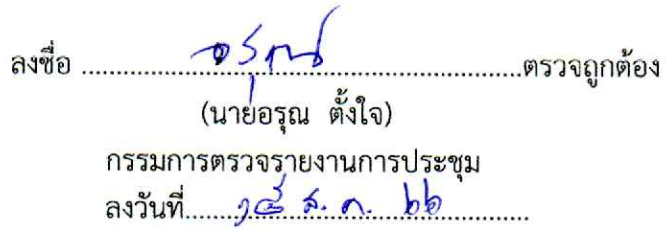 ลงชื่อ ........อรุณ........ตรวจถูกต้อง
(นายอรุณ ตั้งใจ)
กรรมการตรวจรายงานการประชุม
ลงวันที่......๑๕ ส.ค. ๖๖......